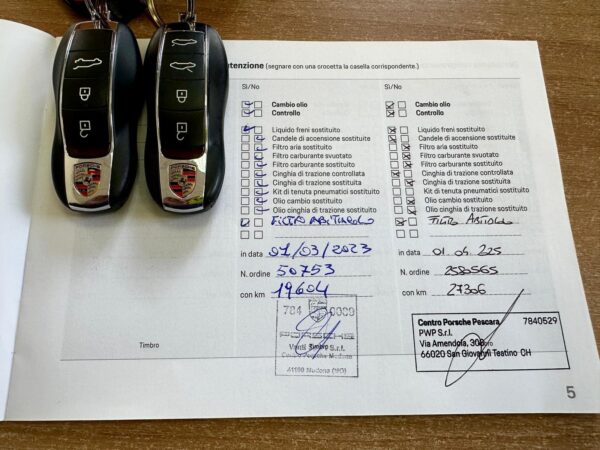 utenzione (segnare con una crocetta la casella corrispondente.)
Sì/No
Cambio olio
Controllo
Liquido freni sostituito
Candele di accensione sostituite
Filtro aria sostituito
Filtro carburante svuotato
Filtro carburante sostituito
Cinghia di trazione controllata
Cinghia di trazione sostituita
Kit di tenuta pneumatici sostituito
Olio cambio sostituito
Olio cinghia di trazione sostituito
FILTRO ABITACOLO
in data 01/03/2023
N. ordine 50753
con km 19604
784 0000
PORSCHE
Centro Porsche Modena
41100 Modena (MO)
Sì/No
Cambio olio
Controllo
Liquido freni sostituito
Candele di accensione sostituite
Filtro aria sostituito
Filtro carburante svuotato
Filtro carburante sostituito
Cinghia di trazione controllata
Cinghia di trazione sostituita
Kit di tenuta pneumatici sostituito
Olio cambio sostituito
Olio cinghia di trazione sostituito
in data 01.04.225
N. ordine 2580565
con km 27306
Centro Porsche Pescara 7840529
PWP S.r.l.
Via Amendola,
66020 San Giovanni Teatino CH
Timbro
5